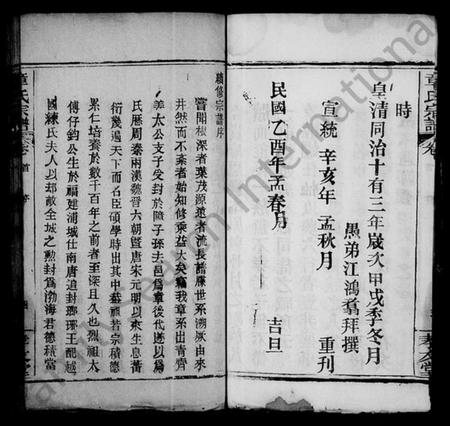 時
皇清同治十有三年歲次甲戌季冬月
愚弟江鴻鶱拜撰
宣統辛亥年孟秋月 重刊
民國乙酉年孟春月 吉旦
續修宗譜序
嘗聞根深者葉茂源遠者流長譜牒世系溯厥由來
井然而不紊者始知修乘益大矣籍我章系出青齊
姜太公支子受封於障子孫去邑為章後代遂以為
氏歷周秦兩漢魏晉六朝暨唐宋元明以來生息蕃
衍幾遍天下而名臣碩學時出其中若宗積德
累仁培養於數千百年之前者至深且久也烈祖太
傅仔鈞公生於福建浦城仕南唐追封瑯琊王配越
國練氏夫人以却敵全城之勲封為渤海君德積當
章氏宗譜 卷首 序
章氏宗譜 卷